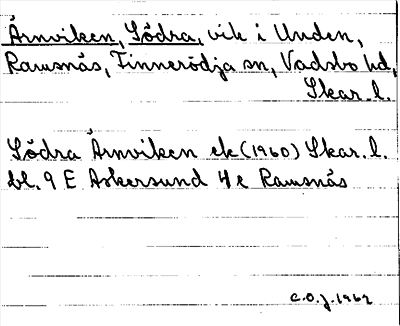 Årnviken, Södra, vik i Unden,
Ramsnäs, Tinnerödja sn, Vadsbo hd,
Skar. l.
Södra Årnviken ek (1960) Skar. l.
bl. 9 E Askersund 4 e Ramsnäs
C.O.J. 1962